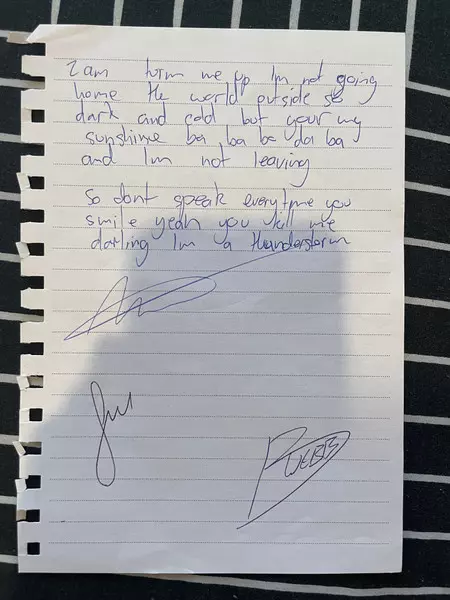 2am turn me up Im not going
home the world outside so
dark and cold but your my
sunshine ba ba ba da ba
and Im not leaving
So dont speak everytime you
smile yeah you kill me
darling Im a thunderstorm
WEBB